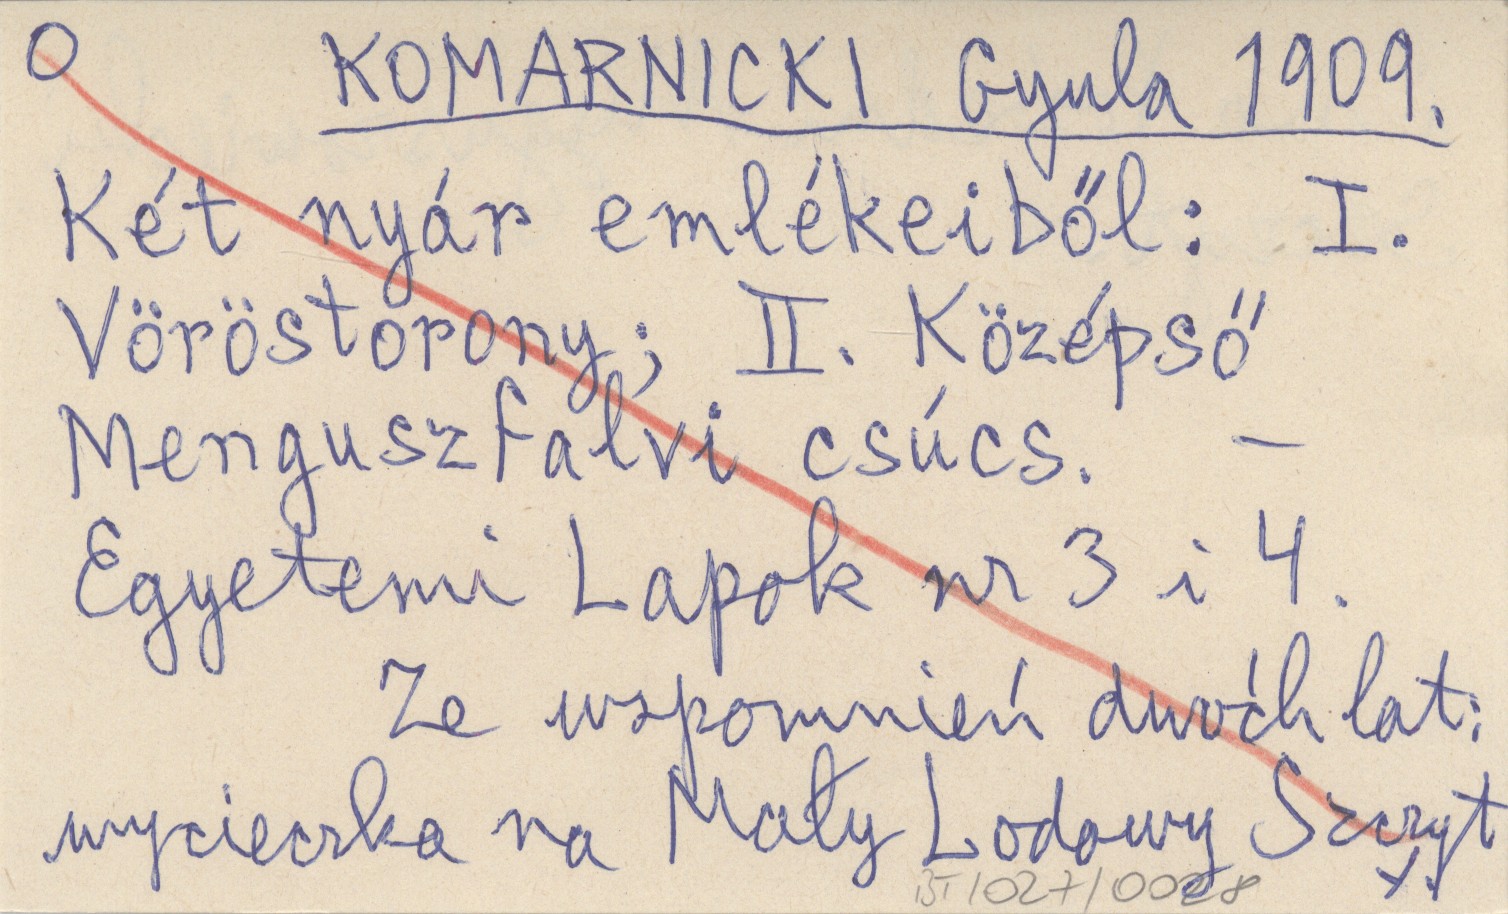 O KOMARNICKI Gyula 1909.
Két nyár emlékeiből: I.
Vöröstorony; II. Középső
Menguszfalvi csúcs. –
Egyetemi Lapok nr 3 i 4.
Ze wspomnień dwóch lat:
wycieczka na Mały Lodowy Szczyt
BT/027/0028